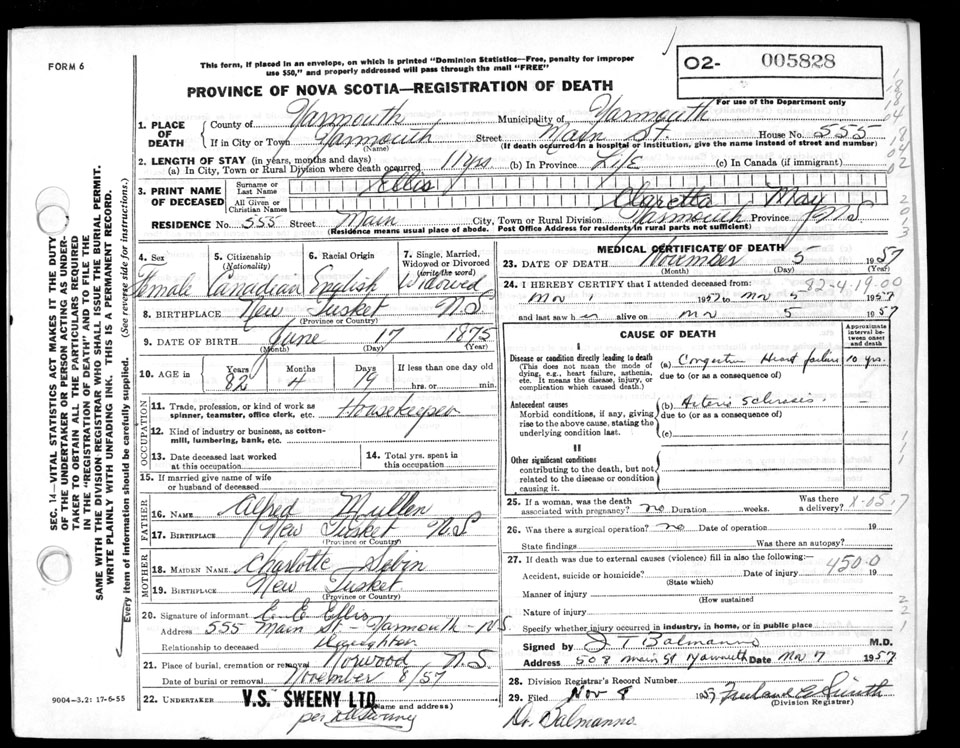 FORM 6
This form, if placed in an envelope, on which is printed "Dominion Statistics—Free, penalty for improper
use $50," and properly addressed will pass through the mail "FREE"
O2- 005828
For use of the Department only
PROVINCE OF NOVA SCOTIA—REGISTRATION OF DEATH
1. PLACE OF DEATH
County of Yarmouth Municipality of Yarmouth
If in City or Town Yarmouth Street Main St. House No. 555
(Name) (If death occurred in a hospital or institution, give the name instead of street and number)
2. LENGTH OF STAY (in years, months and days)
(a) In City, Town or Rural Division where death occurred 11 yrs (b) In Province Life (c) In Canada (if immigrant)
3. PRINT NAME OF DECEASED
Surname or Last Name Ellis
All Given or Christian Names Claretta May
RESIDENCE No. 555 Street Main City, Town or Rural Division Yarmouth Province N.S
(Residence means usual place of abode. Post Office Address for residents in rural parts not sufficient)
4. Sex Female
5. Citizenship (Nationality) Canadian
6. Racial Origin English
7. Single, Married, Widowed or Divorced (write the word) Widowed
8. BIRTHPLACE New Tusket N.S
(Province or Country)
9. DATE OF BIRTH June 17 1875
(Month) (Day) (Year)
10. AGE in Years 82 Months 4 Days 19 If less than one day old
hrs. or min.
OCCUPATION
11. Trade, profession, or kind of work as spinner, teamster, office clerk, etc. Housekeeper
12. Kind of industry or business, as cotton-mill, lumbering, bank, etc.
13. Date deceased last worked at this occupation
14. Total yrs. spent in this occupation
15. If married give name of wife or husband of deceased
FATHER
16. NAME Alfred Mullen
17. BIRTHPLACE New Tusket N.S
(Province or Country)
MOTHER
18. MAIDEN NAME Charlotte
19. BIRTHPLACE New Tusket
(Province or Country)
20. Signature of informant Ellis
Address 555 Main St - Yarmouth - N.S.
Relationship to deceased Daughter
21. Place of burial, cremation or removal Norwood N.S.
Date of burial or removal November 8/57
22. UNDERTAKER V.S. SWEENY LTD.
(Name and address)
per
9004—3.2: 17-6-55
SEC. 14—VITAL STATISTICS ACT MAKES IT THE DUTY
OF THE UNDERTAKER OR PERSON ACTING AS UNDER-
TAKER TO OBTAIN ALL THE PARTICULARS REQUIRED
IN THE "REGISTRATION OF DEATH" AND TO FILE THE
SAME WITH THE DIVISION REGISTRAR WHO SHALL ISSUE THE BURIAL PERMIT.
WRITE PLAINLY WITH UNFADING INK. THIS IS A PERMANENT RECORD.
Every item of information should be carefully supplied. (See reverse side for instructions.)
MEDICAL CERTIFICATE OF DEATH
23. DATE OF DEATH November 5 1957
(Month) (Day) (Year)
82-4-19-00
24. I HEREBY CERTIFY that I attended deceased from:
Nov 1 1957 to Nov 5 1957
and last saw her alive on Nov 5 1957
CAUSE OF DEATH
Approximate interval between onset and death
I
Disease or condition directly leading to death
(This does not mean the mode of dying, e.g., heart failure, asthenia, etc. It means the disease, injury, or complication which caused death.)
(a) Congestive Heart failure 10 yrs.
due to (or as a consequence of)
Antecedent causes
Morbid conditions, if any, giving rise to the above cause, stating the underlying condition last.
(b) Arterio sclerosis. —
due to (or as a consequence of)
(c)
II
Other significant conditions
contributing to the death, but not related to the disease or condition causing it.
25. If a woman, was the death associated with pregnancy? no Duration weeks. Was there a delivery?
26. Was there a surgical operation? no Date of operation 19
State findings Was there an autopsy?
27. If death was due to external causes (violence) fill in also the following:—
450.0
Accident, suicide or homicide? Date of injury 19
(State which)
Manner of injury
(How sustained
Nature of injury
Specify whether injury occurred in industry, in home, or in public place
Signed by J T Balmanno M.D.
Address 508 Main St Yarmouth Date Nov 7 1957
28. Division Registrar's Record Number
29. Filed Nov 8 1957 Smith
(Division Registrar)
Dr. Balmanno.